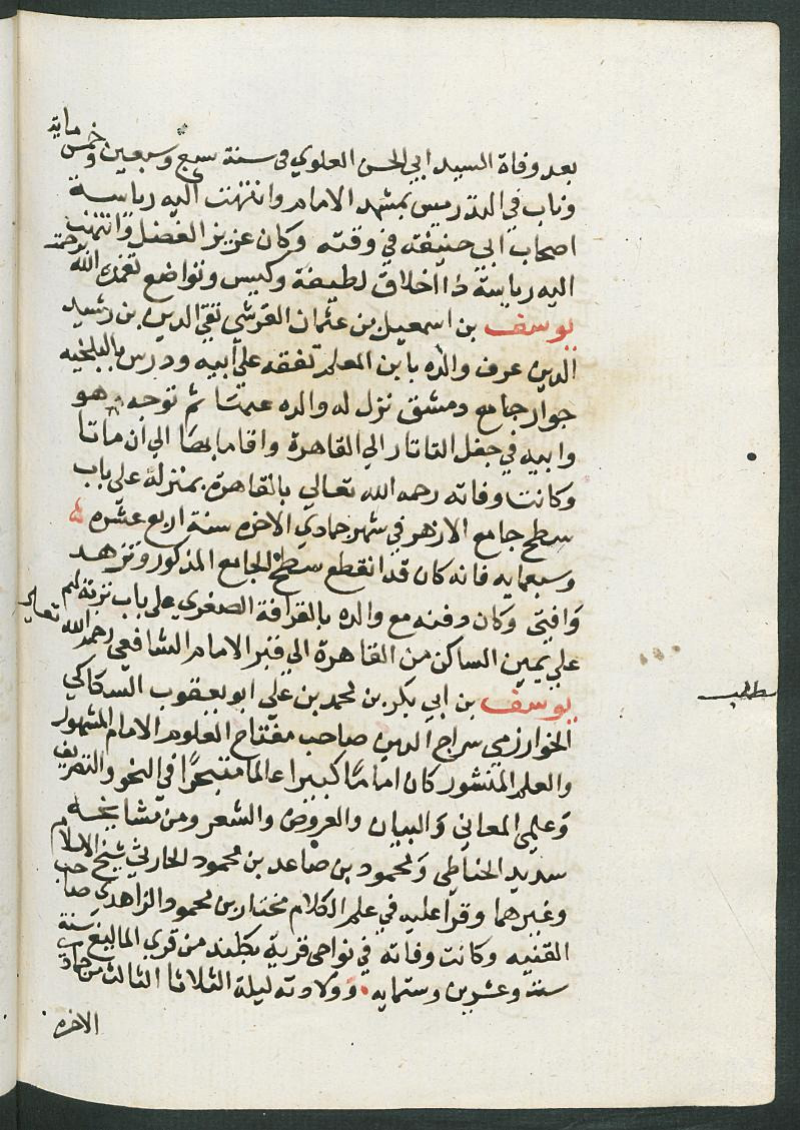 بعد وفاة السيد ابي الحسن العلوي في سنة سبع وسبعين وخمس ماية
وناب في التدريس بمشهد الامام وانتهت اليه رياسة
اصحاب ابي حنيفة في وقته وكان عزيز الفضل وانتهت
اليه رياسة ذا اخلاق لطيفة وكيس وتواضع تغمده الله برحمته
يوسف بن اسمعيل بن عثمان القرشي تقي الدين بن رشيد
الدين عرف والده بابن المعلم تفقه علي ابيه ودرس بالبلخيه
جوار جامع دمشق نزل له والده عنها ثم توجه هو
وابيه في جفل التاتار الي القاهرة واقاما بها الي أن ماتا
وكانت وفاته رحمه الله تعالي بالقاهرة بمنزله علي باب
سطح جامع الازهر في شهر جمادي الاخره سنة اربع عشره
وسبعمايه فانه كان قد انقطع سطح الجامع المذكور وتزهد
وافتي وكان دفنه مع والده بالقرافة الصغري علي باب تربتهم
علي يمين الساكن من القاهرة الي قبر الامام الشافعي رحمه الله تعالى
يوسف بن ابي بكر بن محمد بن علي ابو يعقوب السكاكي
الخوارزمي سراج الدين صاحب مفتاح العلوم الامام المشهور
والعلم المنشور كان اماما كبيرا عالما متبحرا في النحو والتصريف
وعلمي المعاني والبيان والعروض والشعر ومن مشايخه
سديد الحناطي ومحمود بن صاعد بن محمود الحارثي شيخ الاسلام
وغيرهما وقرا عليه في علم الكلام مختار بن محمود الزاهدي صاحب
القنيه وكانت وفاته في نواحي قرية بكطند من قري الماليغ سنة
ست وعشرين وستمايه وولادته ليلة الثلاثا الثالث من جمادي
الاخره
مطلب